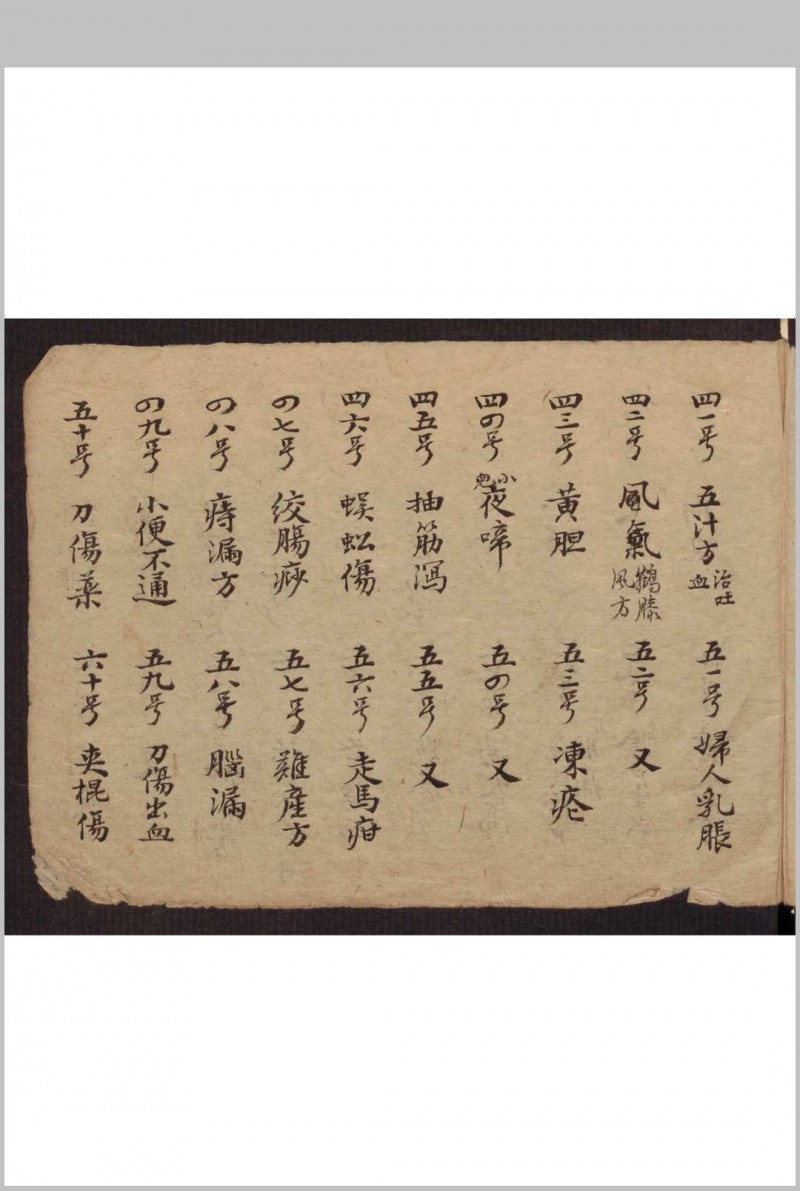 四一号 五汁方 治吐血 五一号 婦人乳脹
四二号 風氣 鶴膝風方 五二号 又
四三号 黄胆 五三号 凍疮
四四号 小児夜啼 五四号 又
四五号 抽筋瀉 五五号 又
四六号 蜈蚣傷 五六号 走馬疳
四七号 绞腸痧 五七号 難産方
四八号 痔漏方 五八号 腦漏
四九号 小便不通 五九号 刀傷出血
五十号 刀傷薬 六十号 夾棍傷